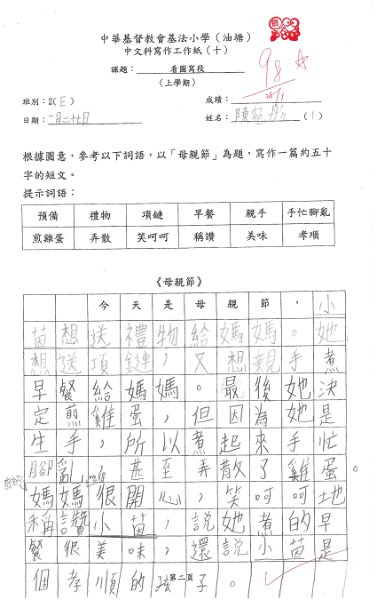 中華基督教會基法小學（油塘）
中文科寫作工作紙（十）
課題： 看圖寫段
（上學期）
98
班別：2(E)
成績：
日期：二月二十七日
姓名：陳 (1)
根據圖意，參考以下詞語，以「母親節」為題，寫作一篇約五十
字的短文。
提示詞語：
預備 禮物 項鏈 早餐 親手 手忙腳亂
煎雞蛋 弄散 笑呵呵 稱讚 美味 孝順
《母親節》
今天是母親節，小
苗想送禮物給媽媽。她
想送項鏈，又想親手煮
早餐給媽媽。最後她決
定煎雞蛋，但因為她是
生手，所以煮起來手忙
腳亂，甚至弄散了雞蛋。
媽媽很開心，笑呵呵地
稱讚小苗，說她煮的早
餐很美味，還說小苗是
個孝順的孩子。
第二頁